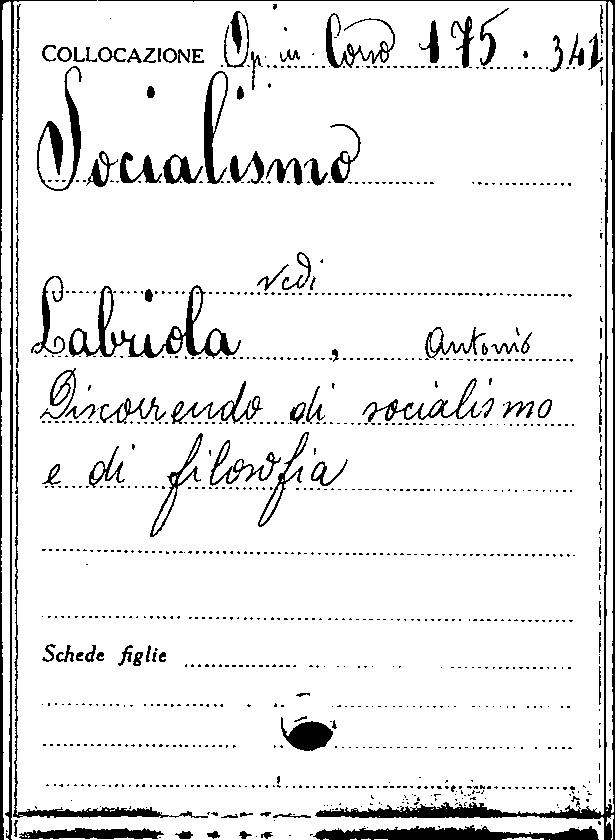 COLLOCAZIONE Op. in Corso 175 . 341
Socialismo
vedi
Labriola , Antonio
Discorrendo di socialismo
e di filosofia
Schede figlie